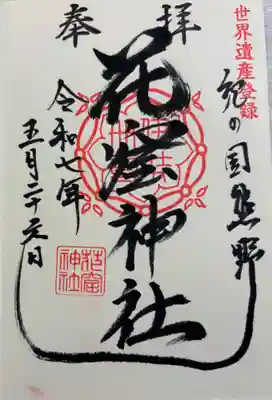 世界遺産登録
紀の国熊野
奉拝
花窟神社
令和七年
五月二十五日
花窟神社